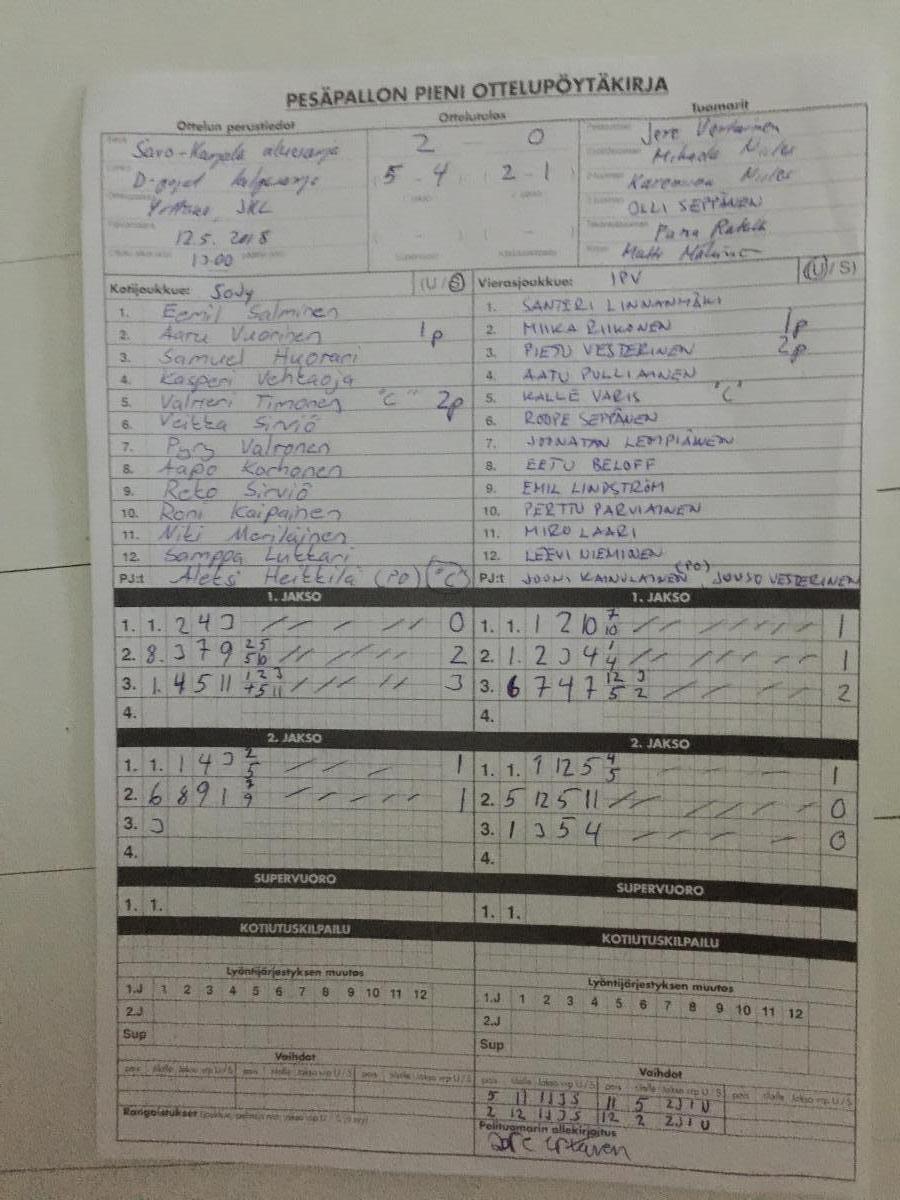 PESÄPALLON PIENI OTTELUPÖYTÄKIRJA
Ottelun perustiedot
Ottelutulos
Tuomarit
Savo-Karjala aluesarja
D-pojat
JKL
12.5. 2018
13.00
2 - 0
5 - 4 2 - 1
- -
Jere
Niiles
Niiles
OLLI SEPPÄNEN
Matti
Kotijoukkue: SoJy (U/S)
1. Eemil Salminen
2. Aaru Vuorinen 1p
3. Samuel Huorari
4. Kasperi Vehtaoja
5. Valtteri Timonen "C" 2p
6. Veikka Sirviö
7. Pyry Valtonen
8. Aapo Korhonen
9. Reko Sirviö
10. Roni Kaipainen
11. Niki Meriläinen
12. Samppa Lukkari
PJ:t Aleksi Heikkilä (PO) "C"
Vierasjoukkue: IPV (U/S)
1. SANTERI LINNANMÄKI
2. MIIKA RIIKONEN 1p
3. PIETU VESTERINEN 2p
4. AATU PULLIAINEN
5. KALLE VARIS "C"
6. ROOPE SEPPÄNEN
7. JOONATAN LEMPIÄINEN
8. EETU BELOFF
9. EMIL LINDSTRÖM
10. PERTTU PARVIAINEN
11. MIRO LAARI
12. LEEVI NIEMINEN
PJ:t JOONI KAINULAINEN (PO), JOUSO VESTERINEN
1. JAKSO
1. 1. 2 4 3 0
2. 8. 3 7 9 2 5 5 10 2
3. 1. 4 5 11 1 2 3 7 5 11 3
4.
1. JAKSO
1. 1. 1 2 10 7 10 1
2. 1. 2 3 4 1 4 1
3. 6 7 4 7 12 3 5 2 2
4.
2. JAKSO
1. 1. 1 4 3 2 5 1
2. 6 8 9 1 3 9 1
3. 3
4.
2. JAKSO
1. 1. 9 12 5 4 5 1
2. 5 12 5 11 0
3. 1 3 5 4 0
4.
SUPERVUORO
1. 1.
SUPERVUORO
1. 1.
KOTIUTUSKILPAILU
KOTIUTUSKILPAILU
Lyöntijärjestyksen muutos
1.J 1 2 3 4 5 6 7 8 9 10 11 12
2.J
Sup
Lyöntijärjestyksen muutos
1.J 1 2 3 4 5 6 7 8 9 10 11 12
2.J
Sup
Vaihdot
pois tilalle Jakso vrp U/S pois tilalle Jakso vrp U/S pois tilalle Jakso vrp U/S
Rangaistukset
Vaihdot
pois tilalle Jakso vrp U/S pois tilalle Jakso vrp U/S pois tilalle Jakso vrp U/S
5 11 1J3S 11 5 2J1U
2 12 1J3S 12 2 2J1U
Pelituomarin allekirjoitus